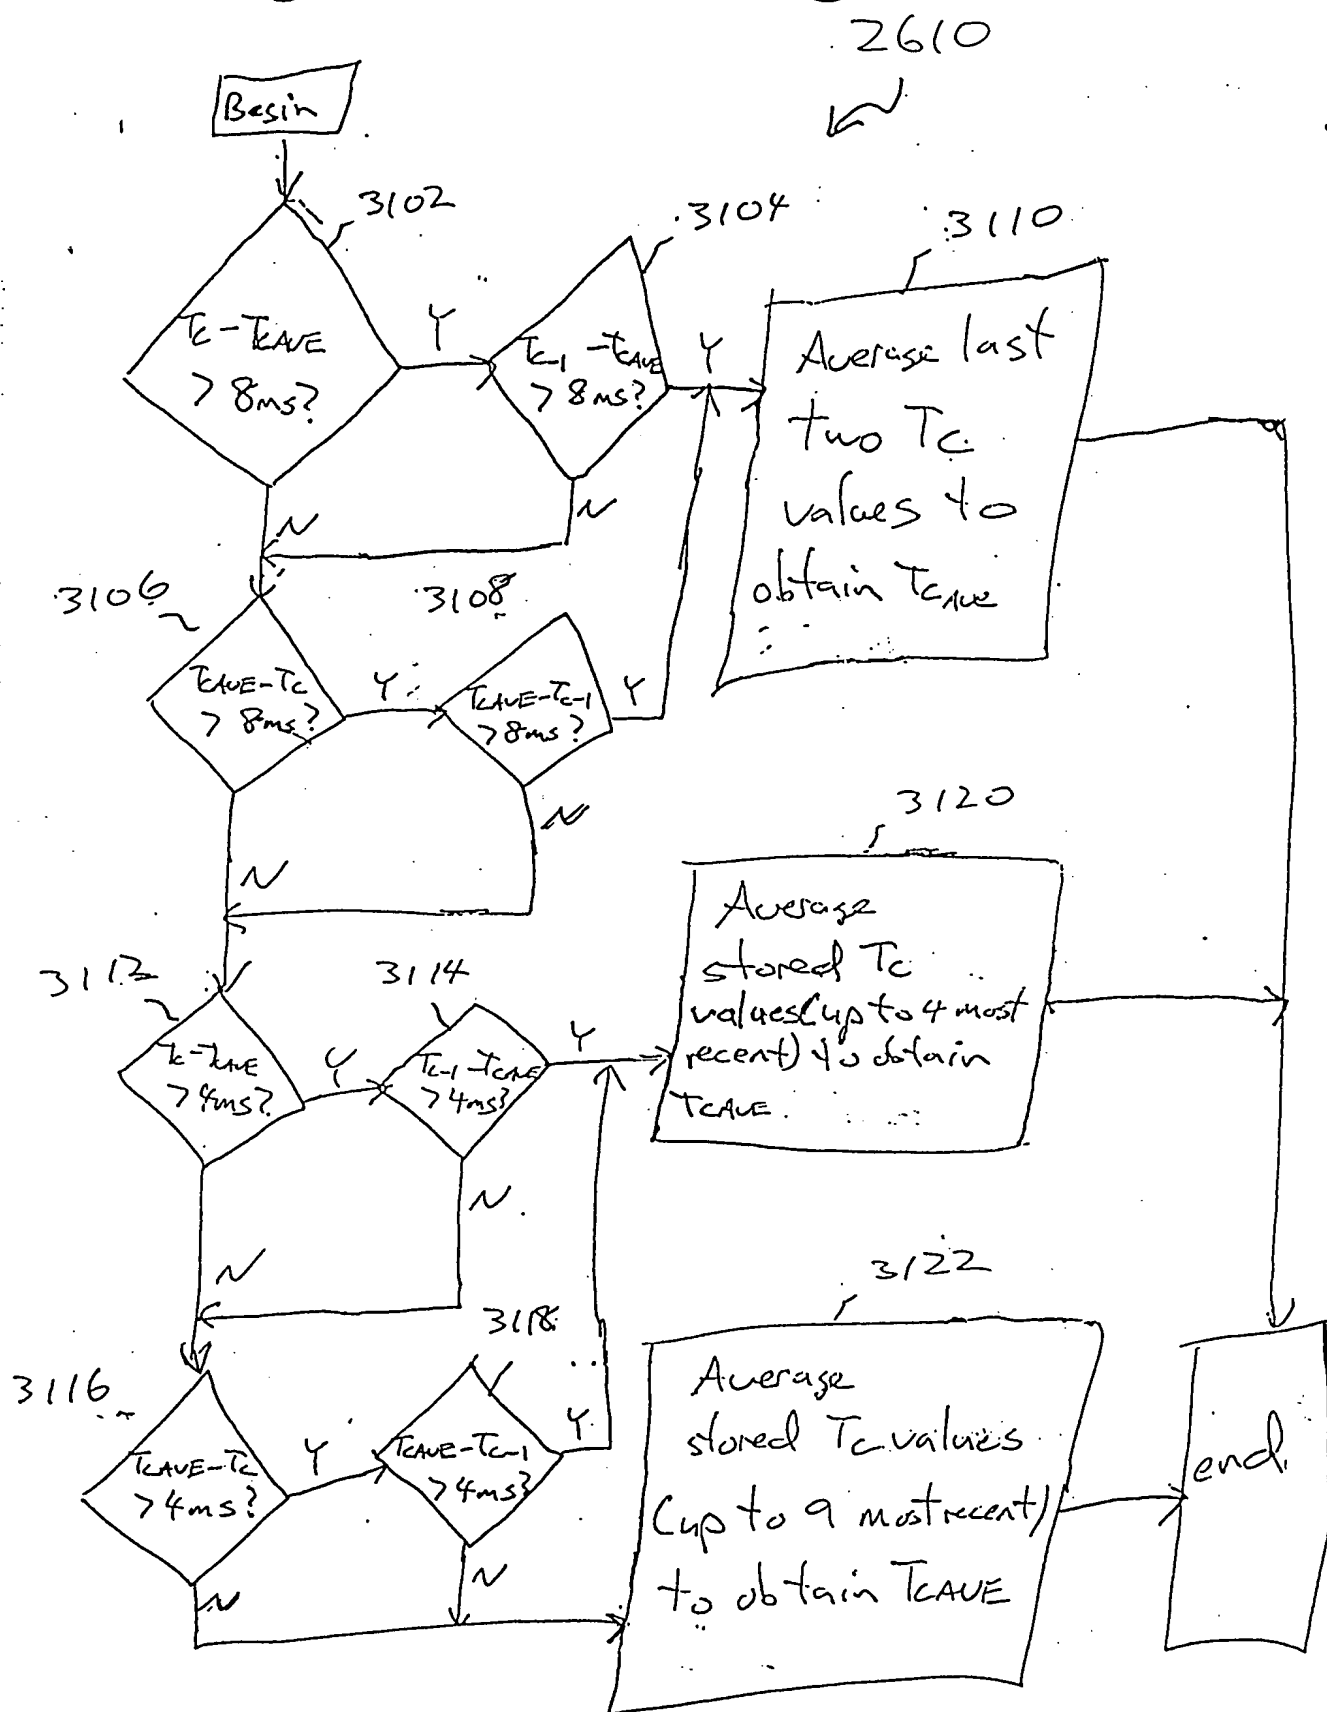 2610
Begin
3102
3104
3110
Tc-TCAVE
> 8ms?
Y
Tc-1 -TCAVE
> 8ms?
Y
Average last
two Tc
values to
obtain TCAVE
N
N
3106
3108
TCAVE-Tc
> 8ms?
Y
TCAVE-Tc-1
> 8ms?
Y
N
N
3120
Average
stored Tc
values(up to 4 most
recent) to obtain
TCAVE.
3112
3114
Tc-TCAVE
> 4ms?
Y
Tc-1-TCAVE
> 4ms?
Y
N
N
3122
3116
3118
TCAVE-Tc
> 4ms?
Y
TCAVE-Tc-1
> 4ms?
Y
N
N
Average
stored Tc values
(up to 9 most recent)
to obtain TCAVE
end